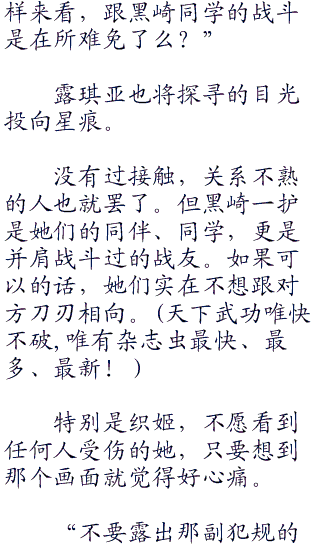 样来看，跟黑崎同学的战斗
是在所难免了么？”
露琪亚也将探寻的目光
投向星痕。
没有过接触，关系不熟
的人也就罢了。但黑崎一护
是她们的同伴、同学，更是
并肩战斗过的战友。如果可
以的话，她们实在不想跟对
方刀刃相向。(天下武功唯快
不破,唯有杂志虫最快、最
多、最新！ )
特别是织姬，不愿看到
任何人受伤的她，只要想到
那个画面就觉得好心痛。
“不要露出那副犯规的